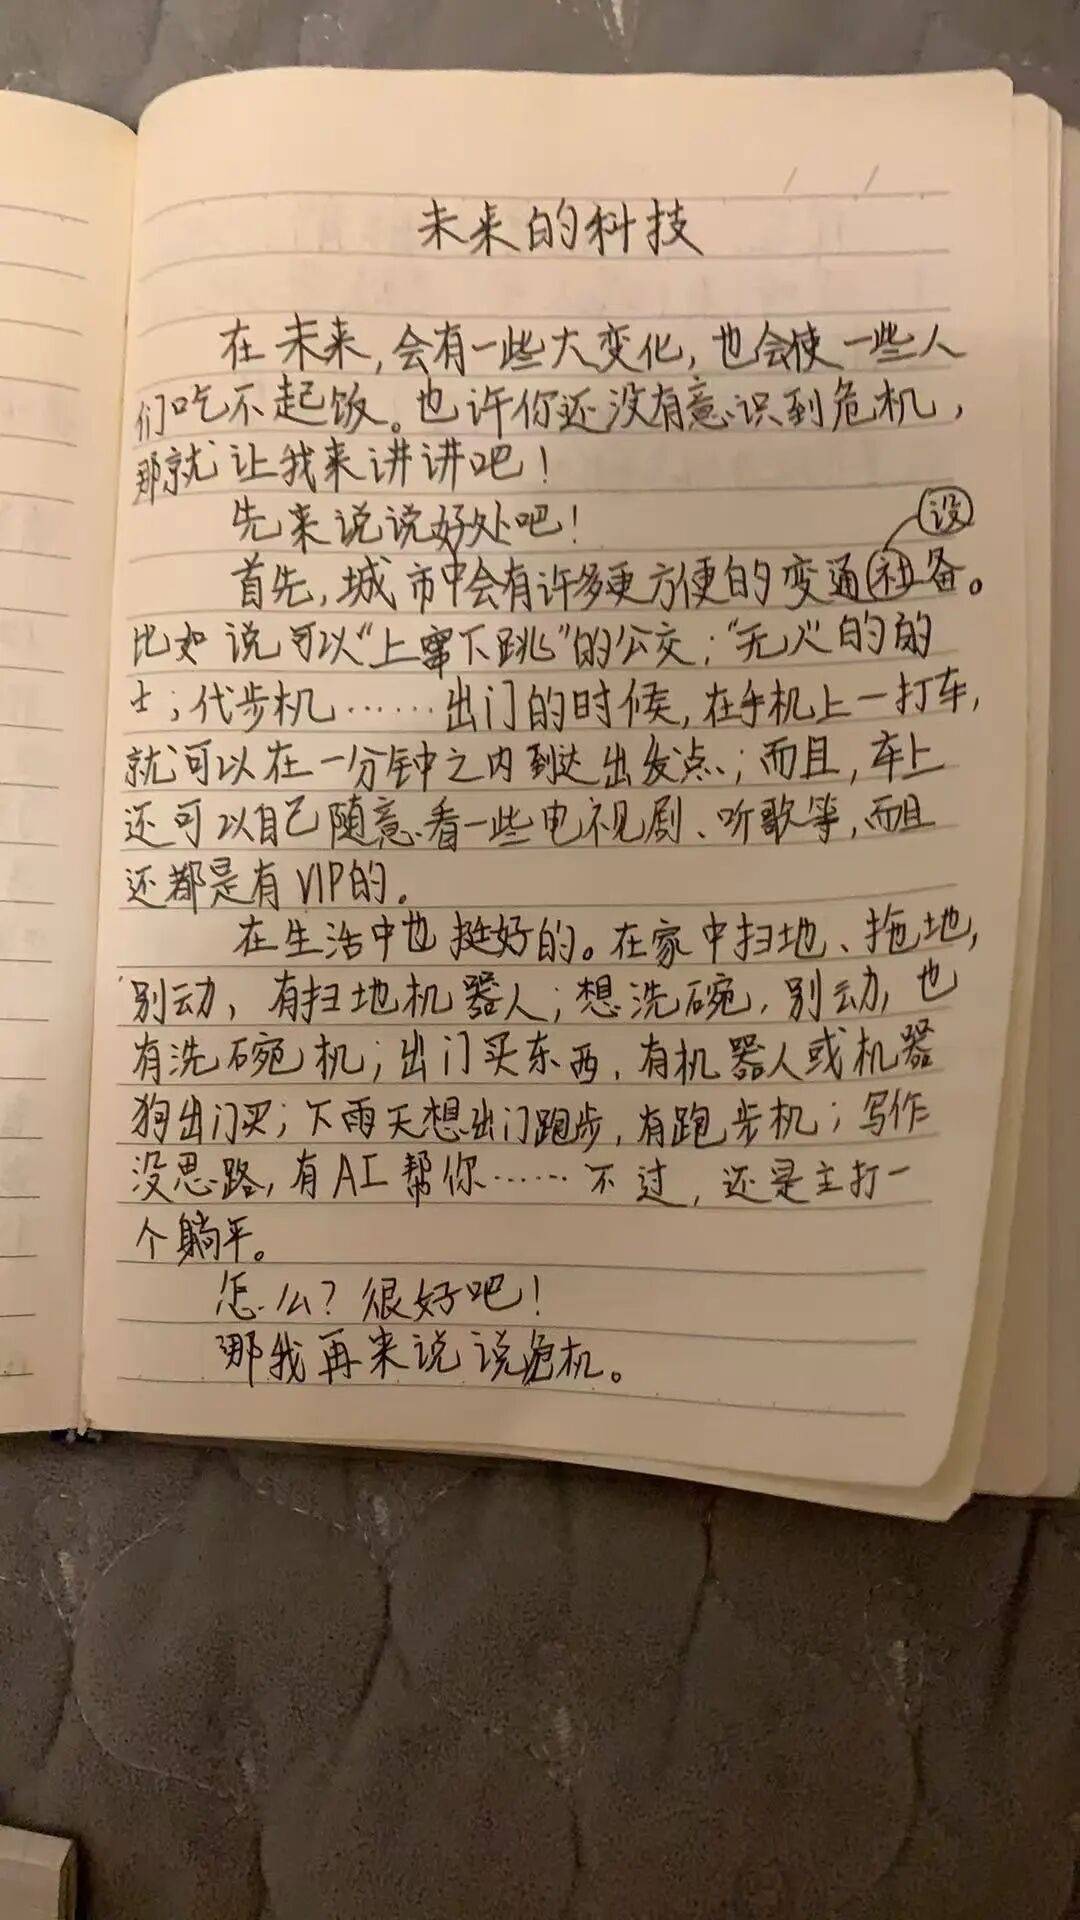 未来的科技
在未来,会有一些大变化,也会使一些人
们吃不起饭。也许你还没有意识到危机,
那就让我来讲讲吧!
先来说说好处吧!
设
首先,城市中会有许多更方便的变通社备。
比如说可以“上窜下跳”的公交;“无人”的的
士;代步机……出门的时候,在手机上一打车,
就可以在一分钟之内到达出发点;而且,车上
还可以自己随意看一些电视剧、听歌等,而且
还都是有VIP的。
在生活中也挺好的。在家中扫地、拖地,
别动,有扫地机器人;想洗碗,别动,也
有洗碗机;出门买东西,有机器人或机器
狗出门买;下雨天想出门跑步,有跑步机;写作
没思路,有AI帮你……不过,还是主打一
个躺平。
怎么?很好吧!
那我再来说说危机。